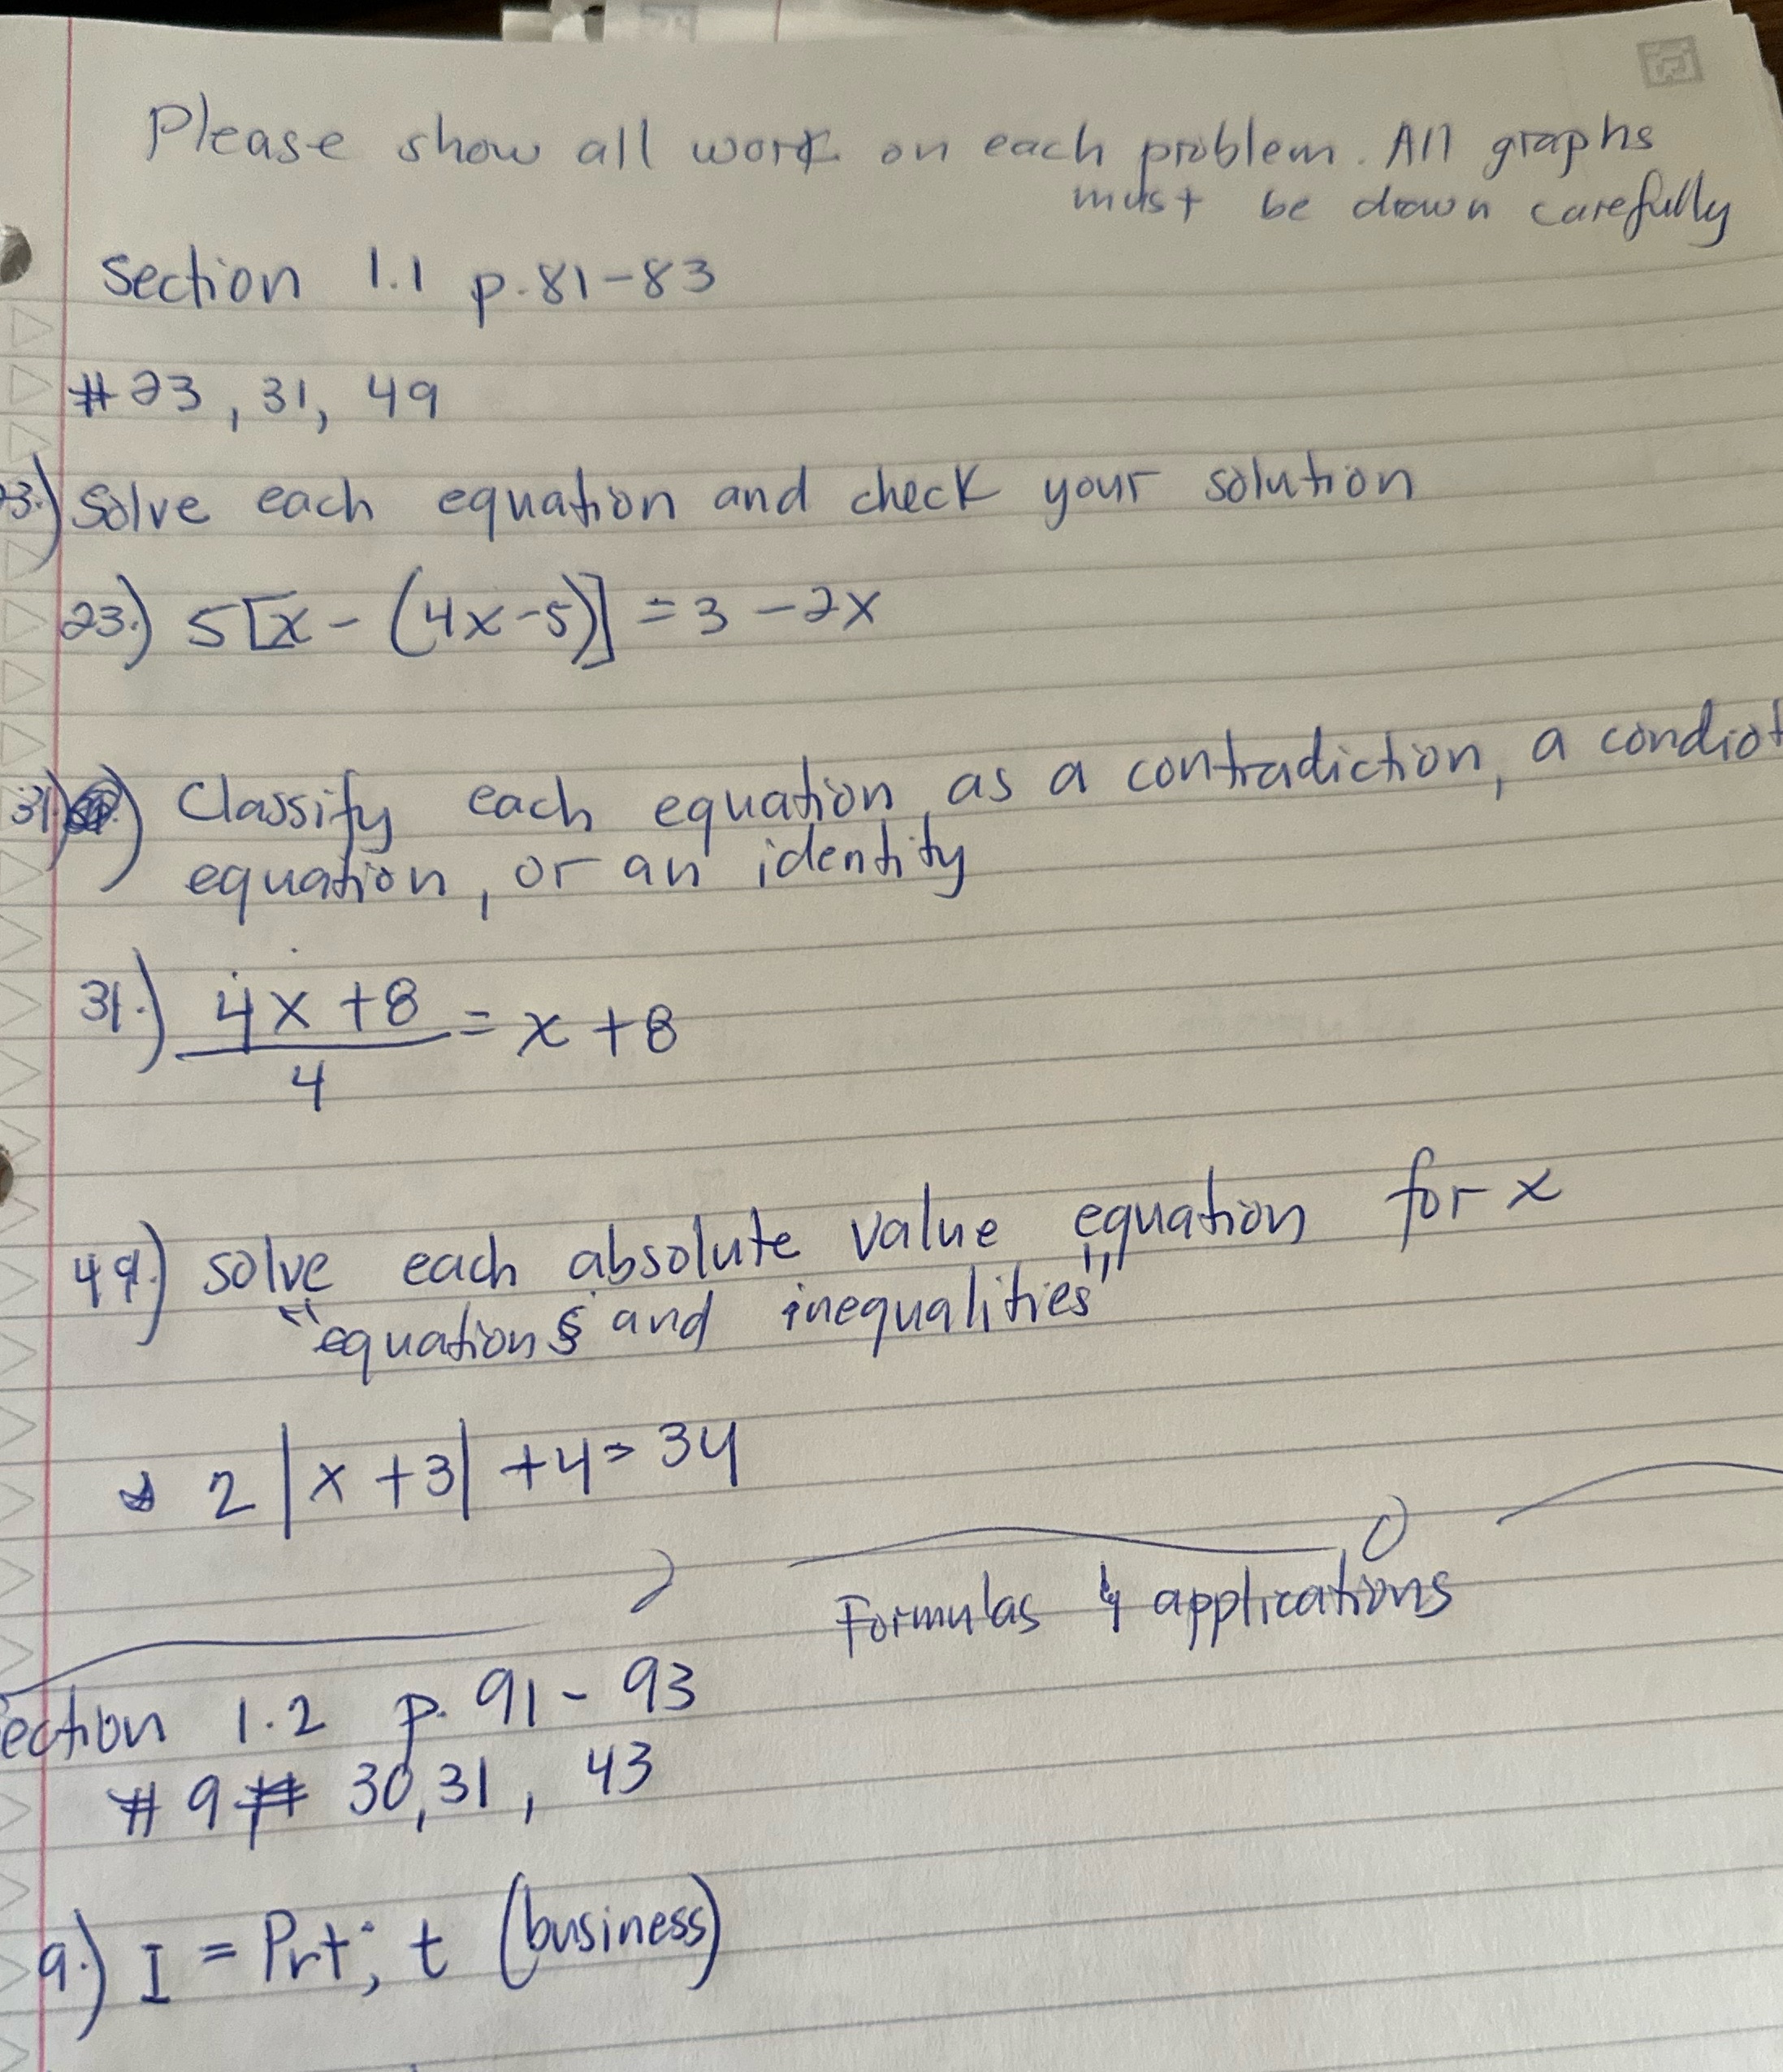 Please show all work on each problem. All graphs
must be drawn carefully
Section 1.1 p.81-83
#23, 31, 49
3.) Solve each equation and check your solution
23.) 5[x-(4x-5)] = 3-2x
31.) Classify each equation as a contradiction, a condiot
equation, or an identity
31.) 4x+8 = x+8
4
49.) solve each absolute value equation for x
"equations and inequalities"
2|x+3|+4=34
Formulas & applications
ection 1.2 p. 91-93
#9 # 30,31, 43
9.) I = Prt; t (business)